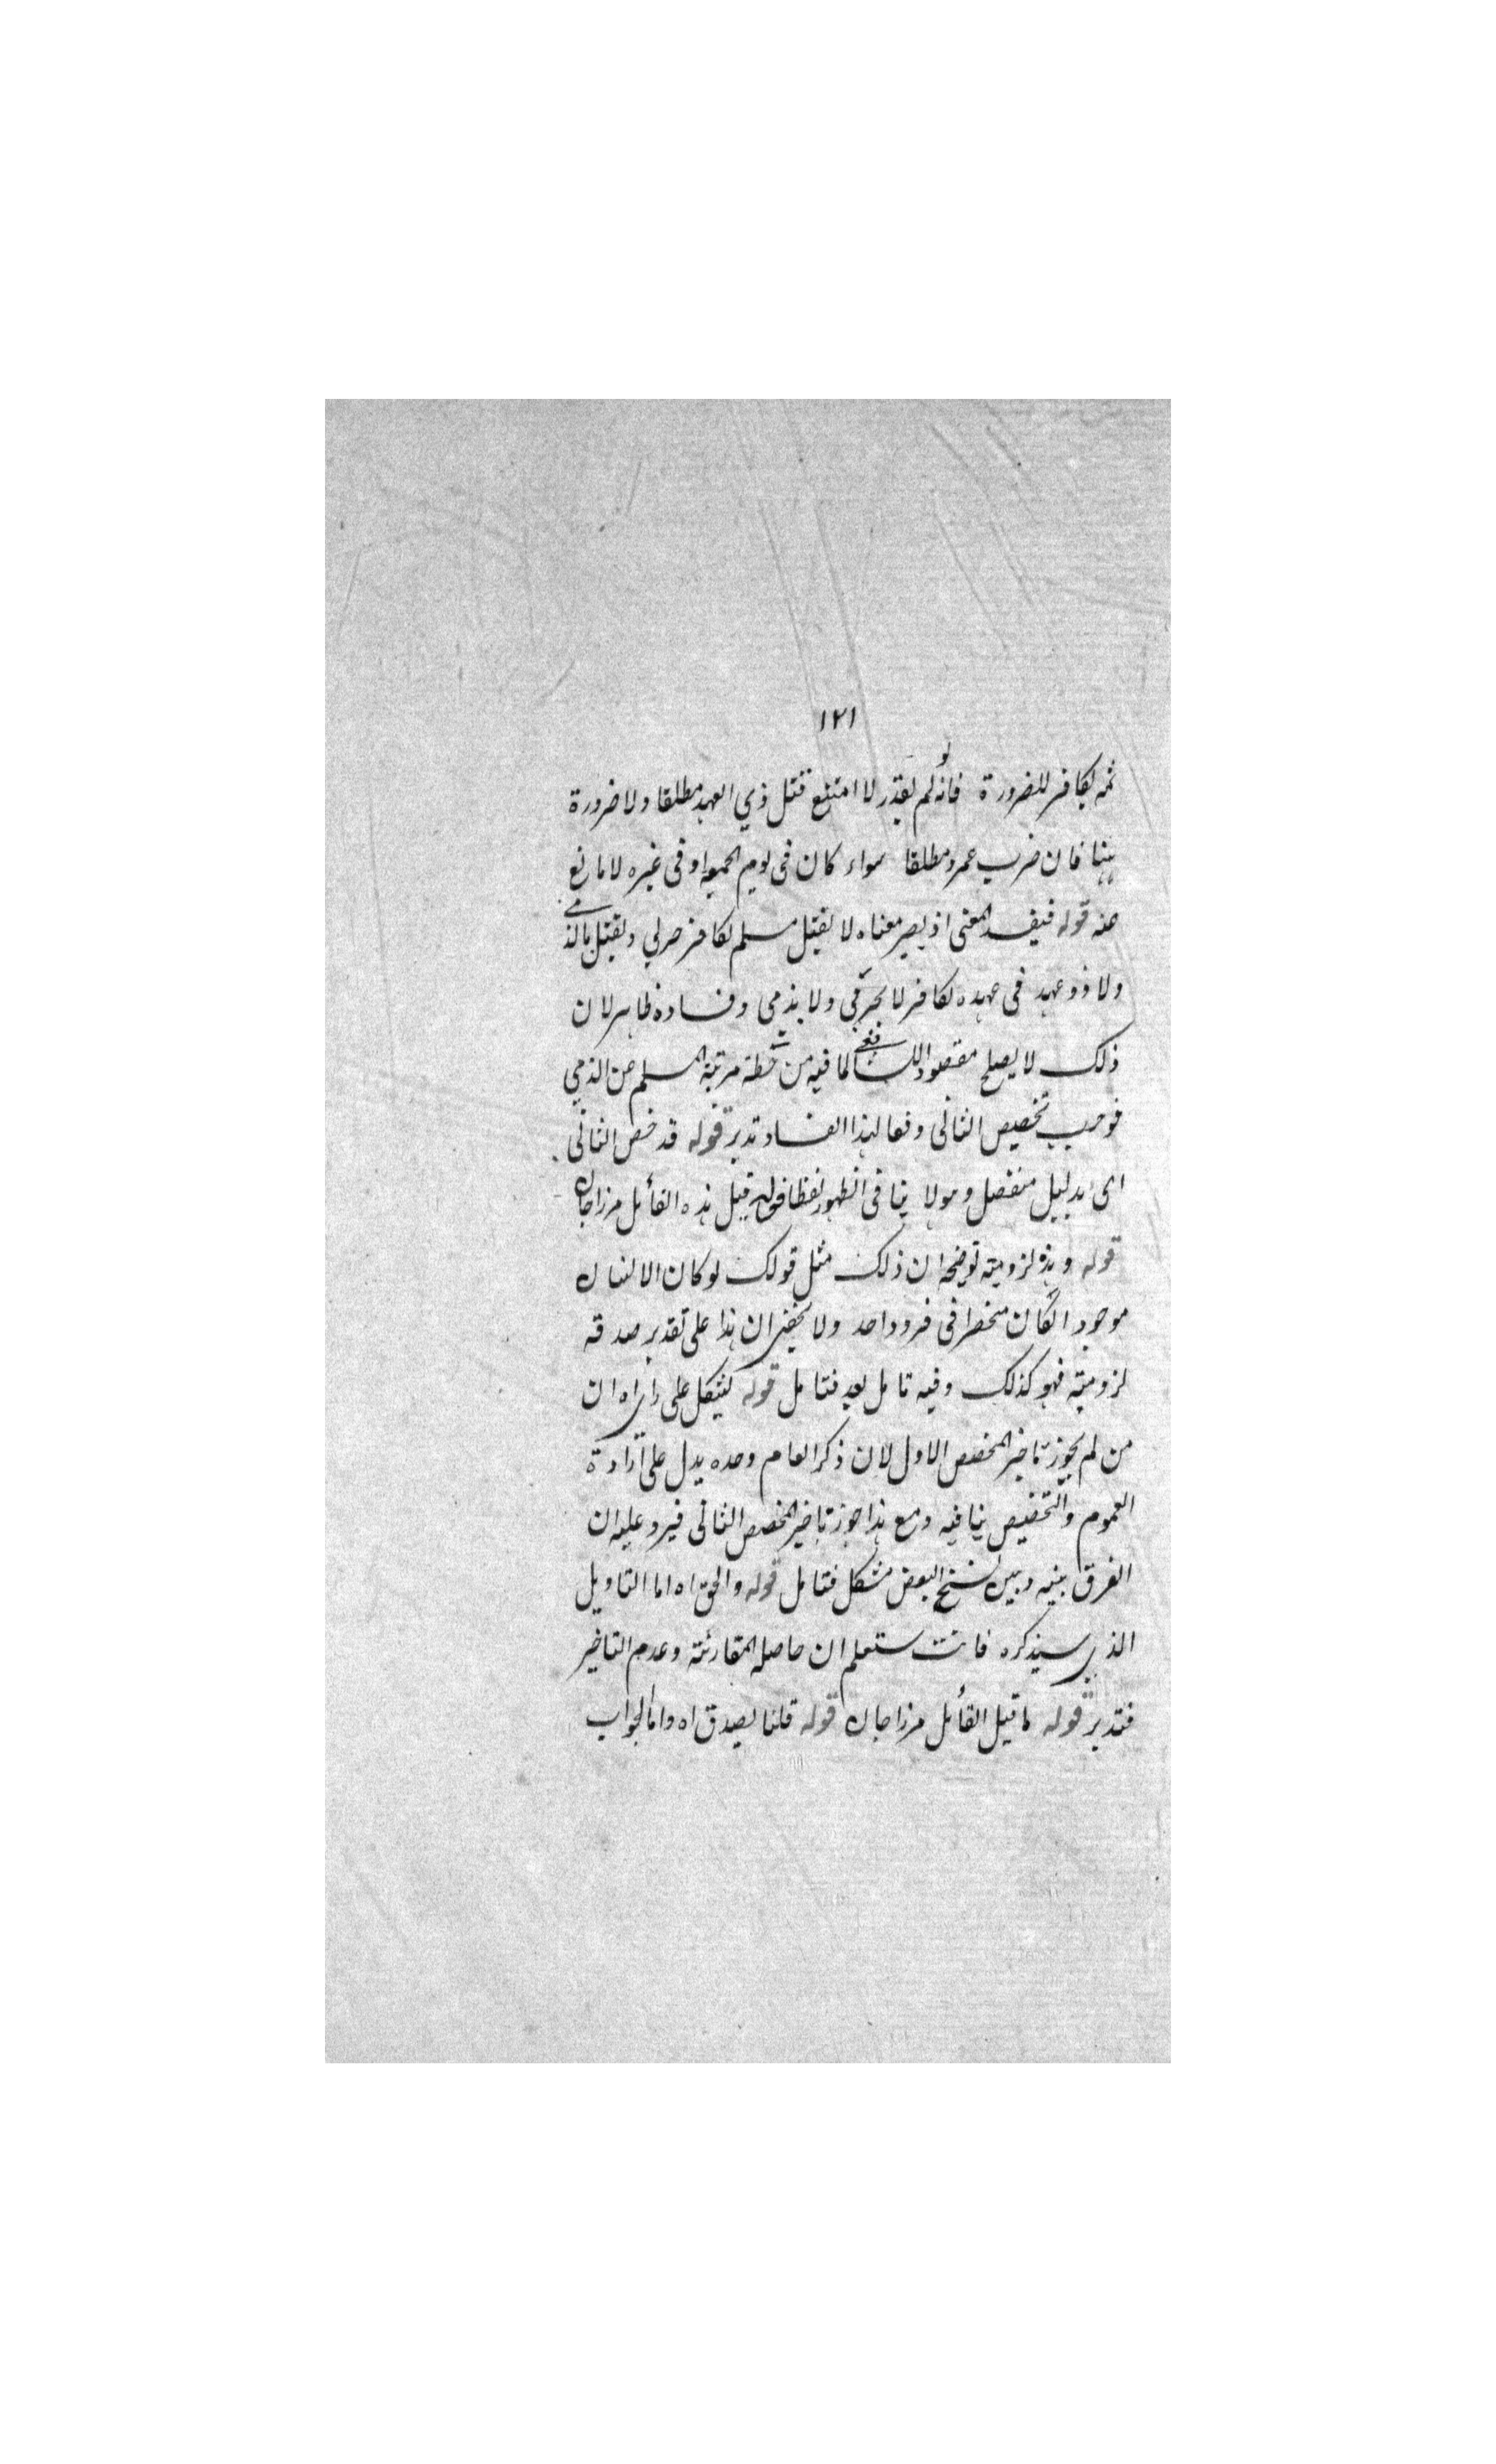 ١٢١
ثمه بكافر للضرورة فانه لو لم يقدر لا امتنع قتل ذي العهد مطلقا ولا ضرورة
ههنا فان ضرب عمرو مطلقا سواء كان فى يوم الجمعه او فى غيره لا مانع
عنه قوله فيفسد المعنى اذ يصير معناه لا يقتل مسلم بكافر حربي ويقتل بالذمي
ولا ذو عهد فى عهده بكافر لا بحربى ولا بذمى وفساده ظاهر لان
ذلك لا يصلح مقصود الشافعي لما فيه من حطة مرتبة المسلم عن الذمي
فوجب تخصيص الثانى دفعا لهذا الفساد تدبر قوله قد خص الثانى
اى بدليل منفصل وهو لا ينافى الظهور لفظا قوله قيل هذه القائل مرزاجان
قوله وهذه لزومية توضيحه ان ذلك مثل قولك لو كان الانسان
موجودا لكان منحصرا فى فرد واحد ولا يخفى ان هذا على تقدير صدقه
لزومية فهو كذلك وفيه تامل بعد فتامل قوله يشكل على رأي اه ان
من لم يجوز تاخير المخصص الاول لان ذكر العام وحده يدل على ارادة
العموم والتخصيص ينافيه ومع هذا جوز تاخير المخصص الثانى فيرد عليه ان
الفرق بينه وبين نسخ البعض مشكل فتامل قوله والحق اه اما التاويل
الذي سيذكره فانت ستعلم ان حاصله المقارنة وعدم التاخير
فتدبر قوله لما قيل القائل مرزاجان قوله قلنا يصدق اه واما الجواب